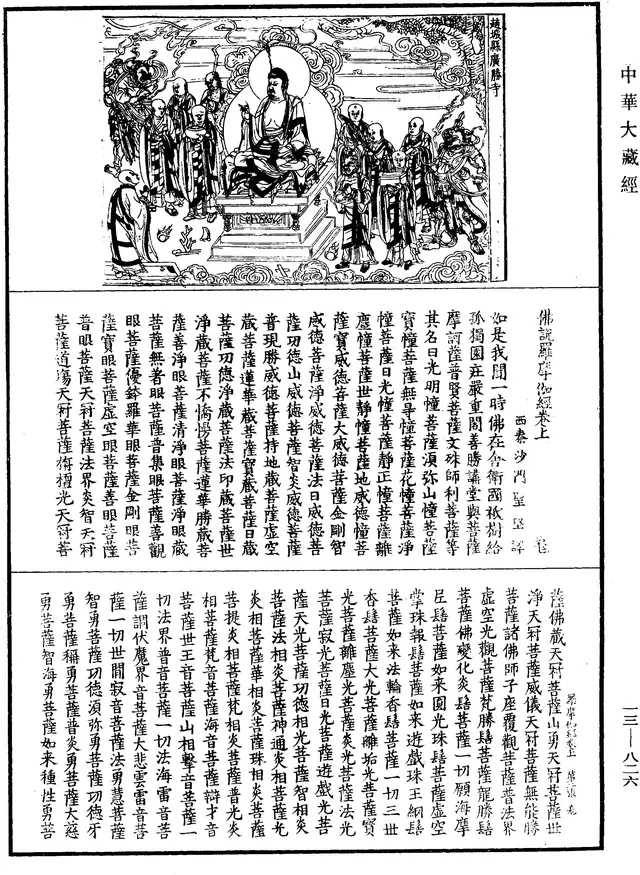 中華大藏經
趙城縣廣勝寺
佛說羅摩伽經卷上
西秦沙門聖堅譯
如是我聞一時佛在舍衛國祇樹給
孤獨園在嚴重閣善勝講堂與菩薩
摩訶薩普賢菩薩文殊師利菩薩等
其名曰光明幢菩薩須弥山幢菩薩
寶幢菩薩無㝵幢菩薩花幢菩薩淨
幢菩薩日光幢菩薩靜正幢菩薩離
塵幢菩薩世靜幢菩薩地威德幢菩
薩寶威德菩薩大威德菩薩金剛智
威德菩薩淨威德菩薩法日威德菩
薩功德山威德菩薩智炎威德菩薩
普現勝威德菩薩持地藏菩薩虛空
藏菩薩蓮華藏菩薩寶藏菩薩日藏
菩薩功德淨藏菩薩法印藏菩薩世
淨藏菩薩不憍慢菩薩蓮華勝藏菩
薩善淨眼菩薩清淨眼菩薩淨眼藏
菩薩無著眼菩薩普集眼菩薩善觀
眼菩薩優鉢羅華眼菩薩金剛眼菩
薩寶眼菩薩虛空眼菩薩善眼菩薩
普眼菩薩天冠菩薩法界炎智天冠
菩薩道場天冠菩薩栴檀光天冠菩
羅摩伽經卷上 第二張
薩佛藏天冠菩薩山勇天冠菩薩世
淨天冠菩薩威儀天冠菩薩無能勝
菩薩諸佛師子座覆觀菩薩普法界
虛空光觀菩薩梵勝髻菩薩龍勝髻
菩薩佛變化炎髻菩薩一切願海摩
尼髻菩薩如來圓光珠髻菩薩虛空
掌珠報髻菩薩如來遊戲珠王網髻
菩薩如來法輪香髻菩薩一切三世
香髻菩薩大光菩薩離垢光菩薩寶
光菩薩離塵光菩薩炎光菩薩法光
菩薩寂光菩薩日光菩薩遊戲光菩
薩天光菩薩功德相光菩薩智相炎
菩薩法相炎菩薩神通炎相菩薩光
炎相菩薩華相炎菩薩珠相炎菩薩
菩提炎相菩薩梵相炎菩薩普光炎
相菩薩梵音菩薩海音菩薩辯才音
菩薩世王音菩薩山相擊音菩薩一
切法界普音菩薩一切法海雷音菩
薩調伏魔界音菩薩大悲雲雷音菩
薩一切世間寂音菩薩法勇慧菩薩
智勇菩薩功德須弥勇菩薩功德牙
勇菩薩稱勇菩薩普炎勇菩薩大慈
勇菩薩智海勇菩薩如來種性勇菩
一三—八二六